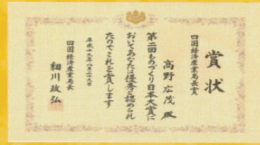 賞状
四国経済産業局長賞
高野広茂殿
第二回ものづくり日本大賞に
おいてあなたは優秀と認められ
たのでこれを賞します
平成十九年八月二十九日
四国経済産業局長
細川政弘